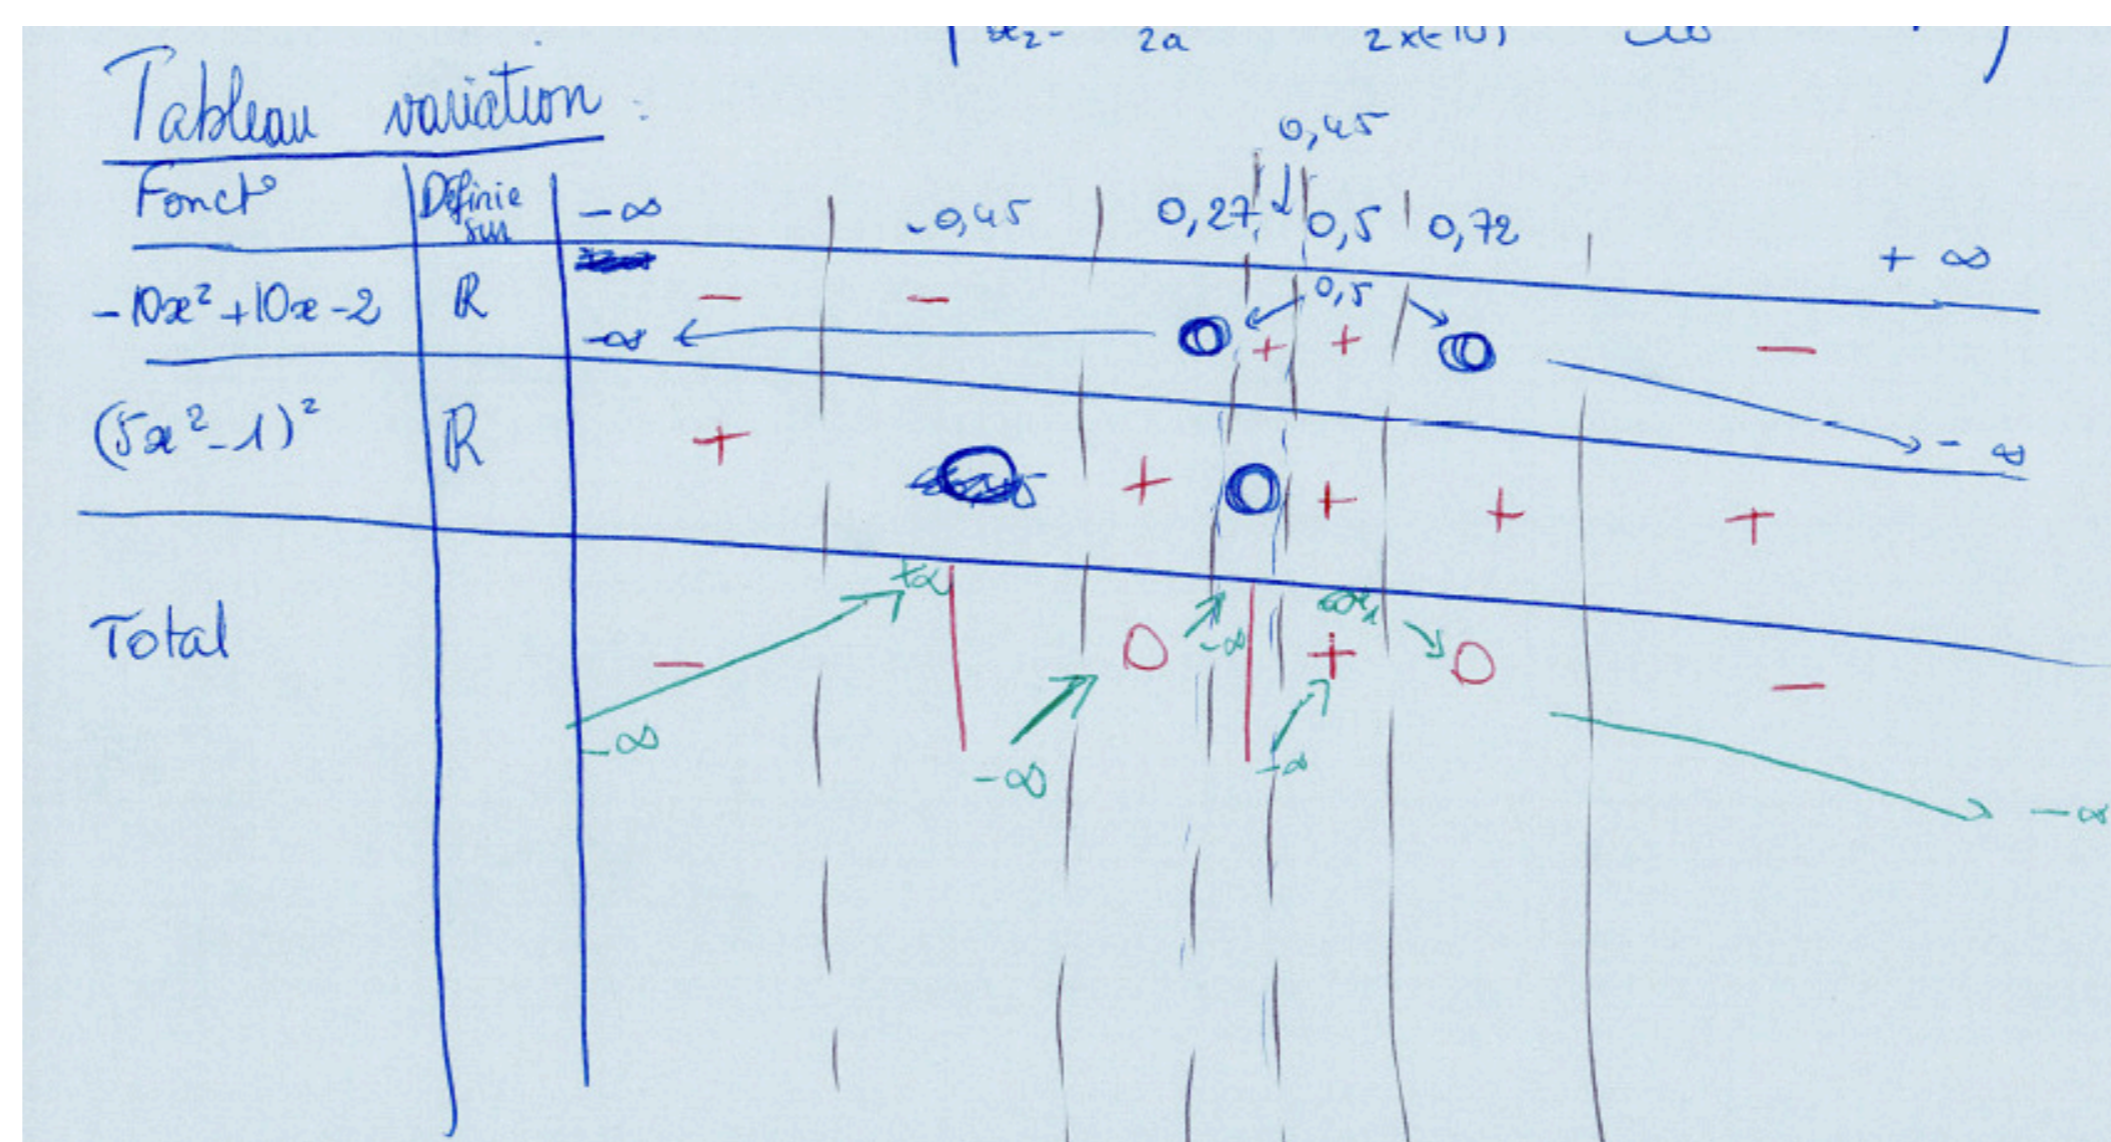 2a 2x(-10)
Tableau variation :
0,45
Fonct° Définie sur -∞ -0,45 0,27 ↓ 0,5 0,72 +∞
-10x² + 10x - 2 ℝ - - 0,5 + + -
-∞ -∞
(5x² - 1)² ℝ + + + + +
+∞
Total - 0 -∞ + 0 -
-∞ -∞ -∞ -∞